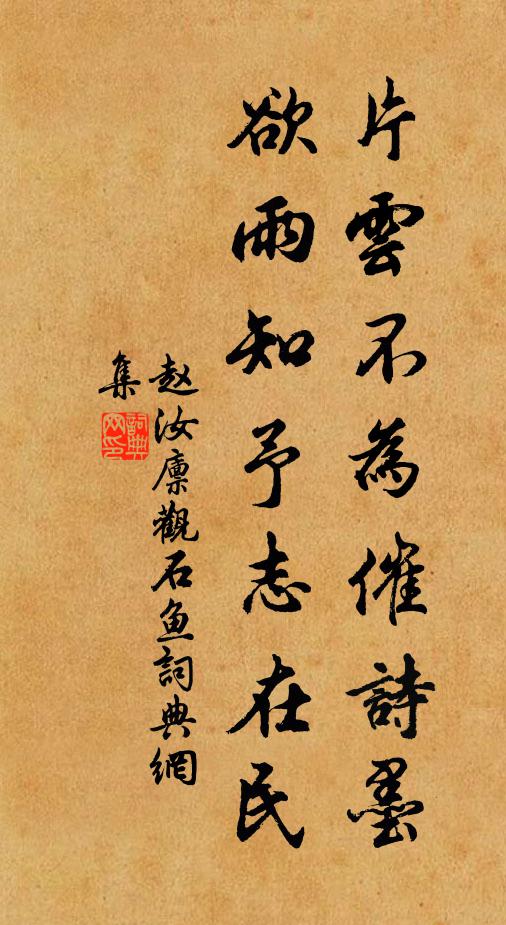 片雲不為催詩墨
欲雨知予志在民
赵汝廪觀石鱼詞典網
集
詞典網印